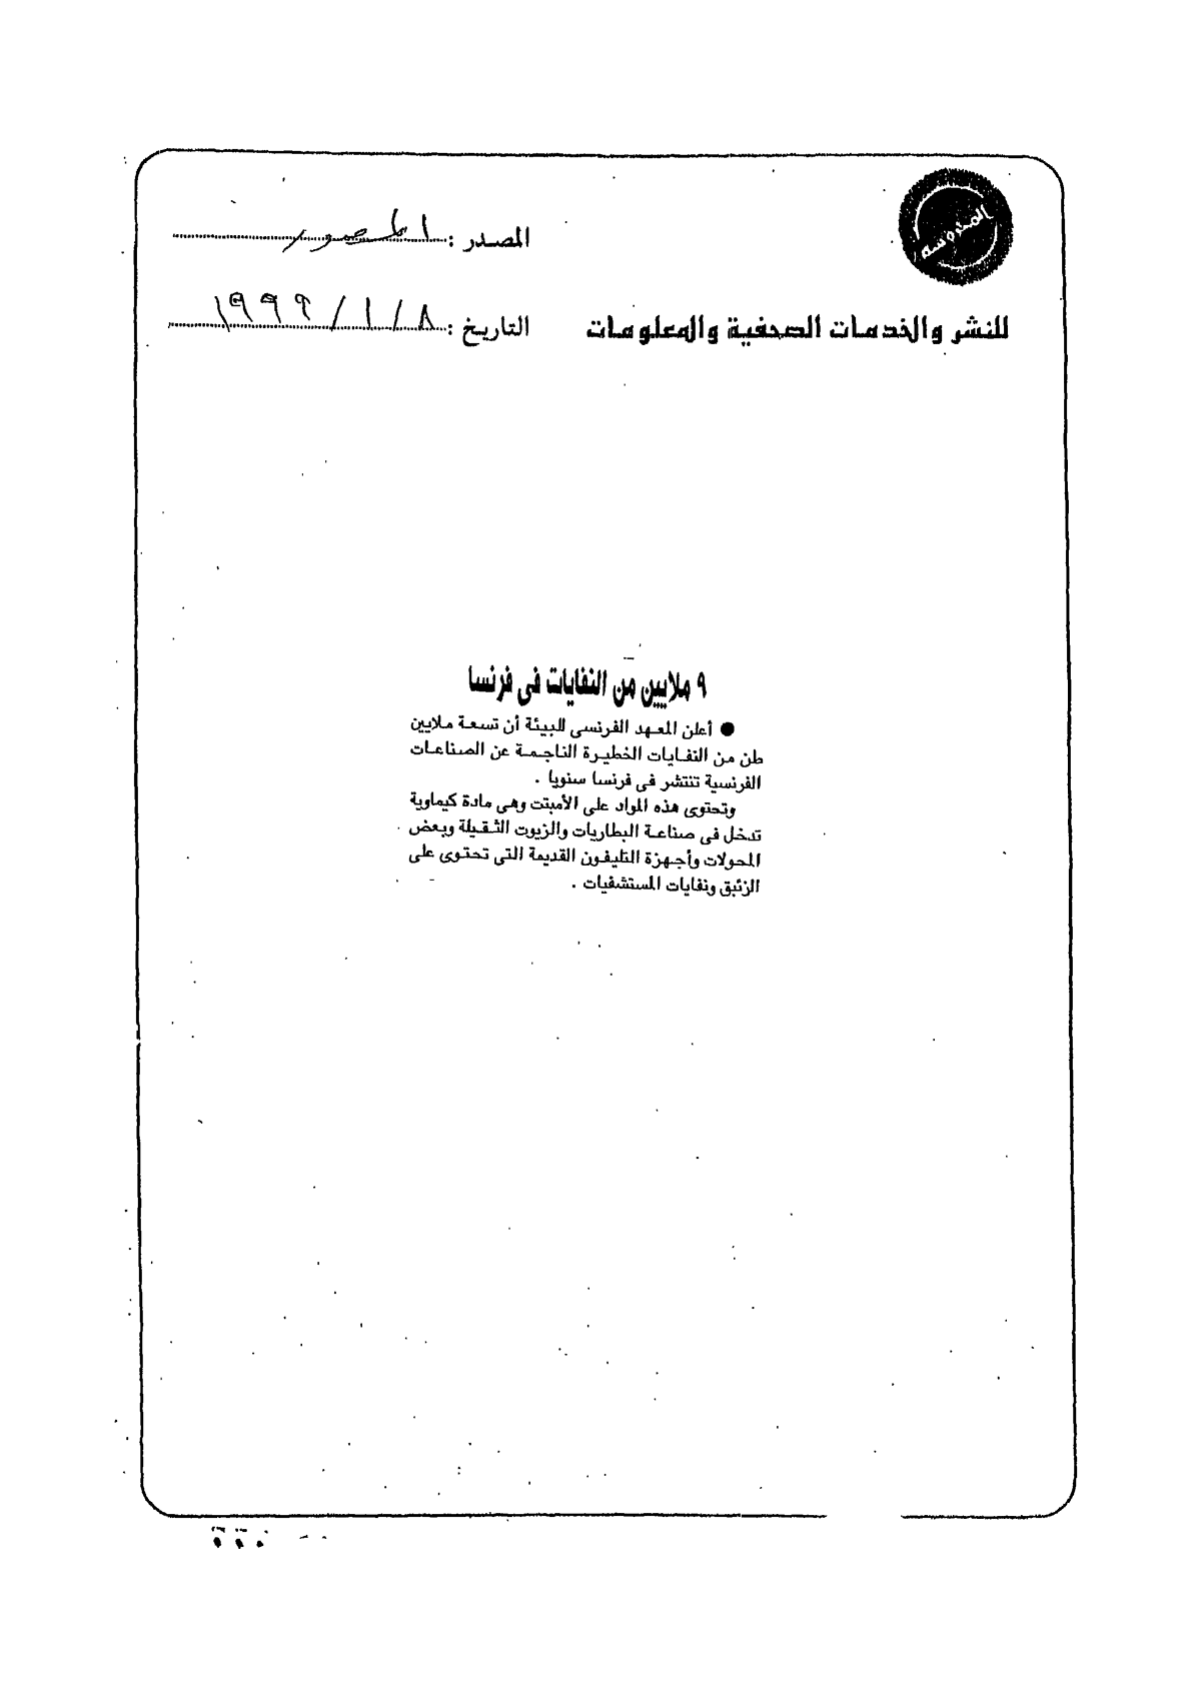 المحروسة
المصدر : المصور
للنشر والخدمات الصحفية والمعلومات
التاريخ : ٨ / ١ / ١٩٩٩
٩ ملايين من النفايات فى فرنسا
● أعلن المعهد الفرنسى للبيئة أن تسعة ملايين
طن من النفايات الخطيرة الناجمة عن الصناعات
الفرنسية تنتشر فى فرنسا سنويا .
وتحتوى هذه المواد على الأمبتت وهى مادة كيماوية
تدخل فى صناعة البطاريات والزيوت الثقيلة وبعض
المحولات وأجهزة التليفون القديمة التى تحتوى على
الزئبق ونفايات المستشفيات .